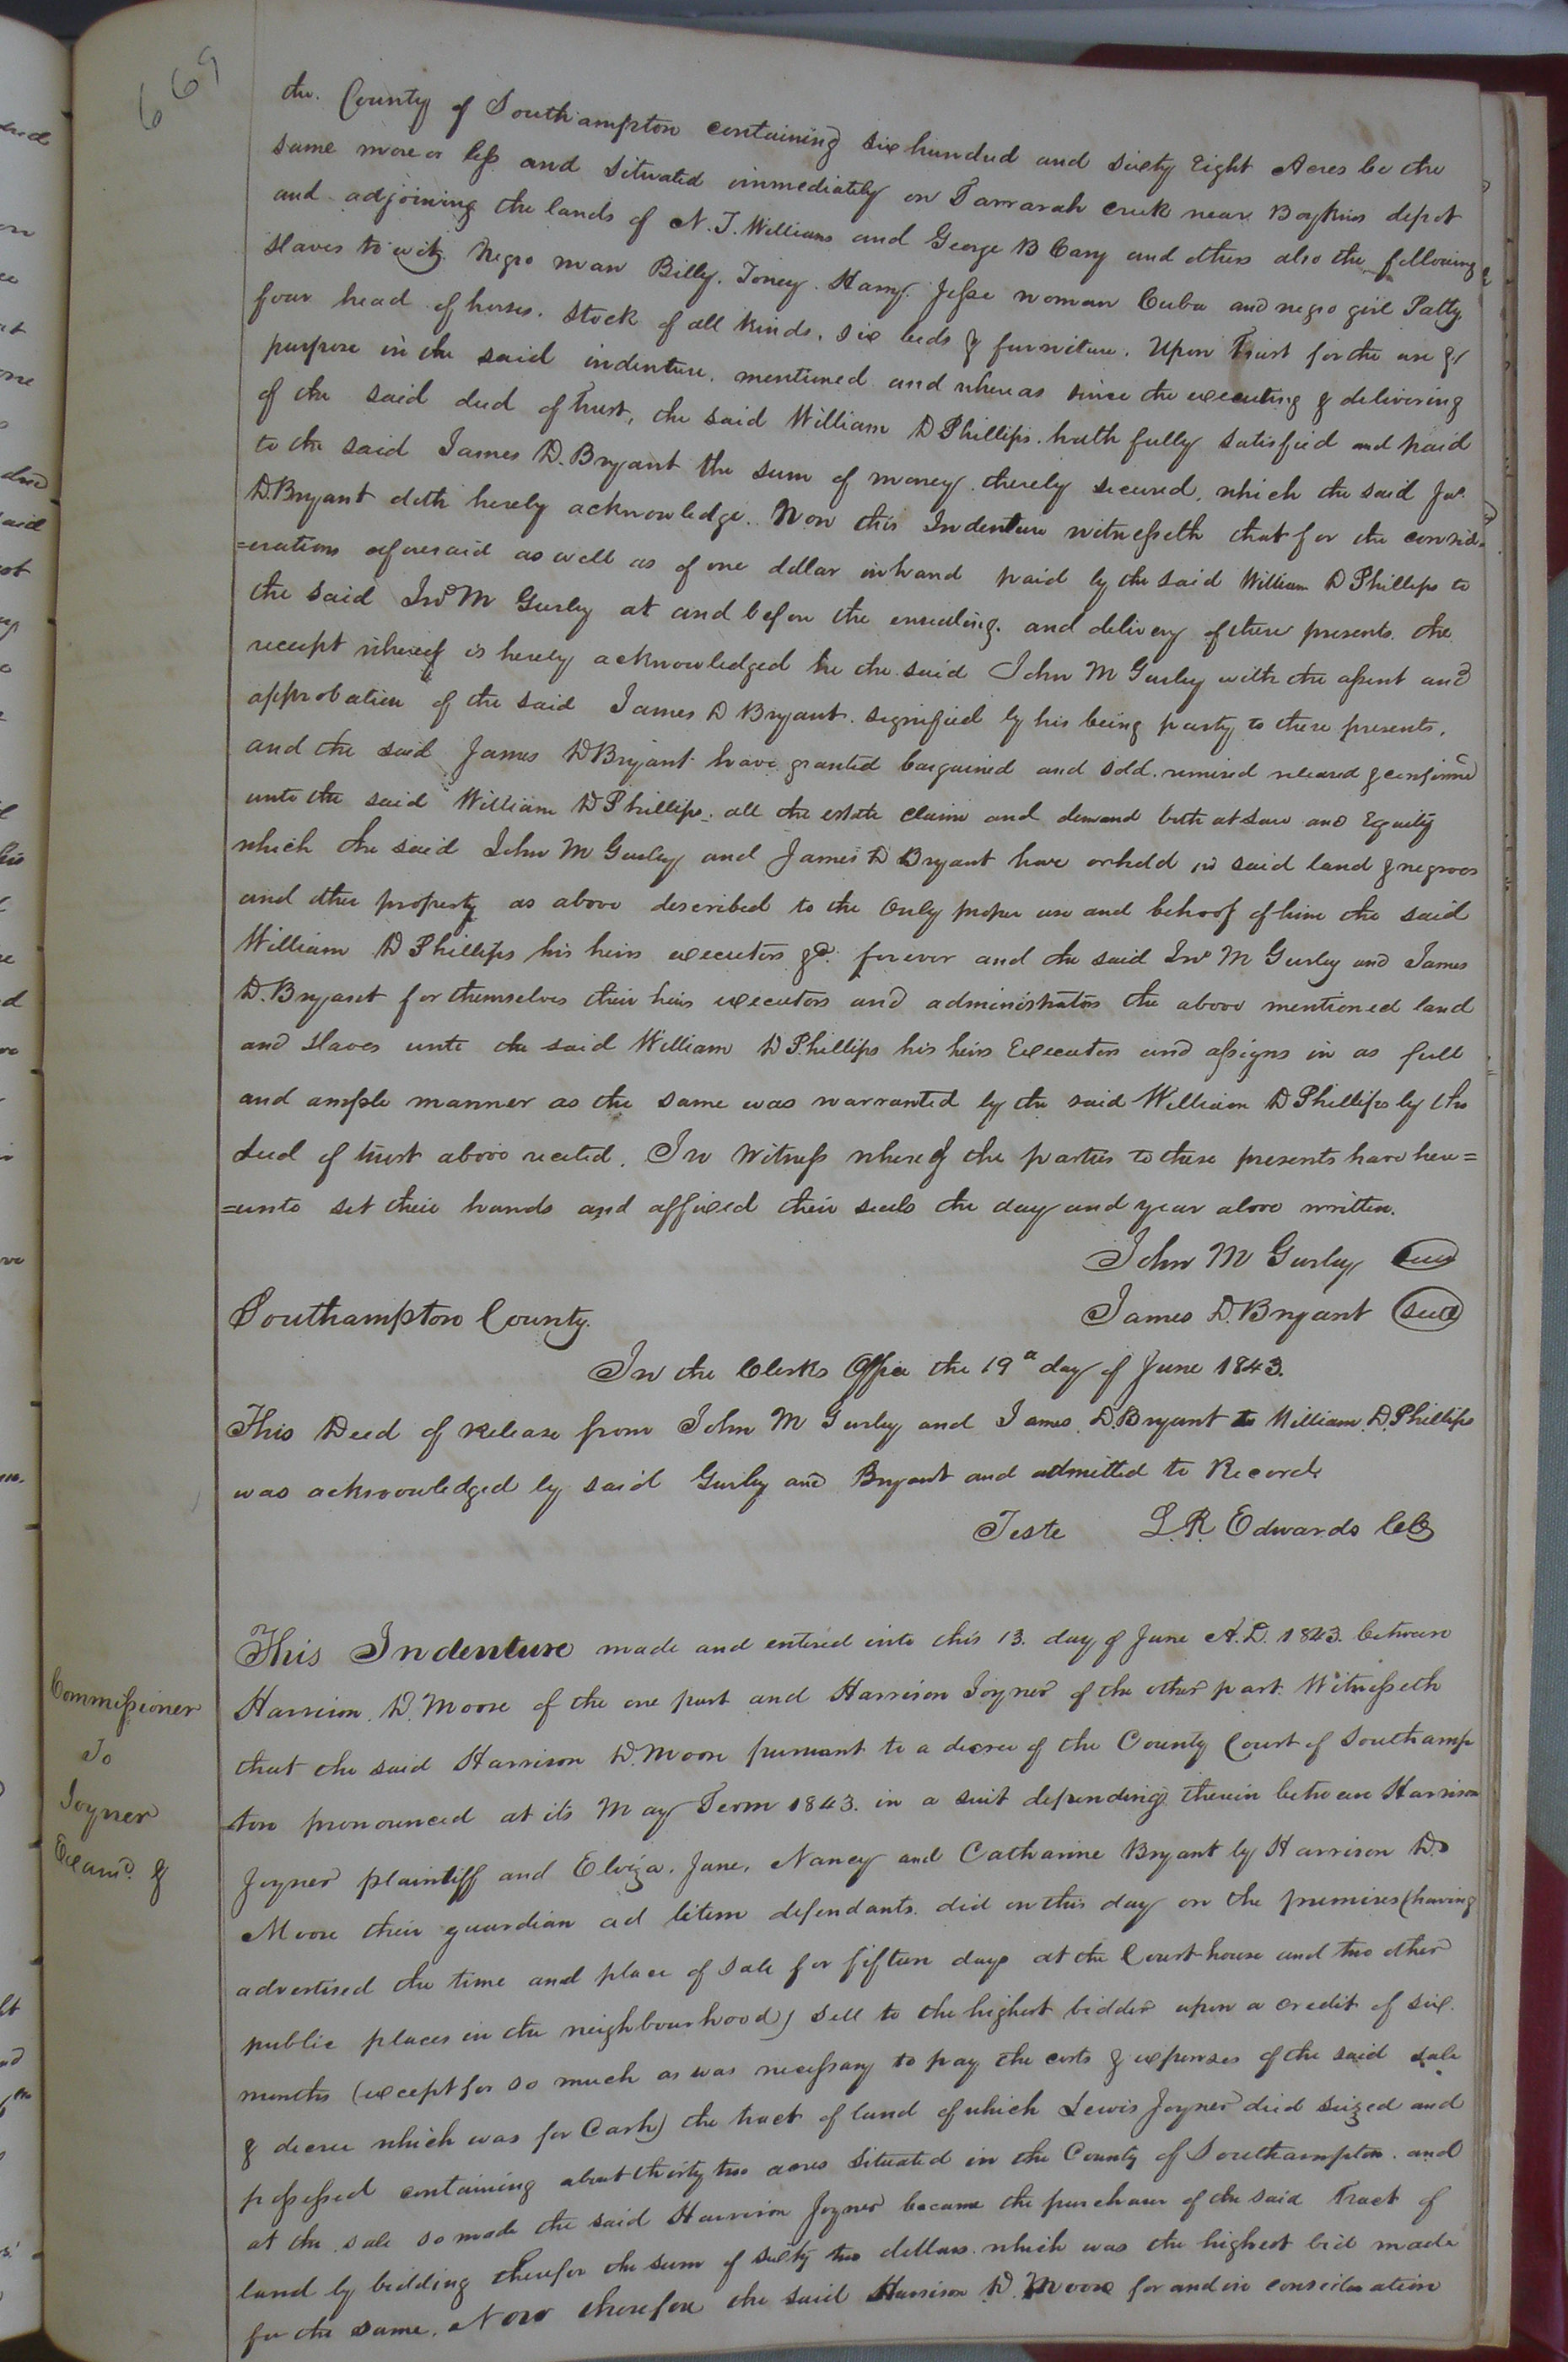 669
the County of Southampton containing six hundred and sixty Eight Acres be the
same more or less and situated immediately on Tarrarah creek near Boykins depot
and adjoining the lands of N. T. Williams and George B Cary and others also the following
slaves to wit, Negro man Billy. Toney. Harry. Jesse woman Cuba and negro girl Patty.
four head of horses. stock of all kinds. six beds & furniture. Upon Trust for the use &
purpose in the said indenture. mentioned and whereas since the executing & delivering
of the said deed of Trust, the said William D Phillips. hath fully satisfied and paid
to the said James D. Bryant the sum of money. thereby secured, which the said Jas.
D. Bryant doth hereby acknowledge. Now this Indenture witnesseth that for the consid=
=erations aforesaid as well as of one dollar in hand paid by the said William D Phillips to
the said Jno M Gurley at and before the ensealing. and delivery of these presents. the
receipt whereof is hereby acknowledged he the said John M Gurley with the assent and
approbation of the said James D Bryant. signified by his being party to these presents.
and the said James D Bryant have granted bargained and sold. remised released & confirmed
unto the said William D Phillips. all the estate claim and demand both at Law and Equity
which the said John M Gurley and James D Bryant have or hold in said land & negroes
and other property as above described to the only proper use and behoof of him the said
William D Phillips his heirs executors &c. forever and the said Jno M Gurley and James
D. Bryant for themselves their heirs executors and administrators the above mentioned land
and slaves unto the said William D Phillips his heirs Executors and assigns in as full
and ample manner as the same was warranted by the said William D Phillips by the
deed of trust above recited. In Witness whereof the parties to these presents have here=
=unto set their hands and affixed their seals the day and year above written.
John M Gurley seal
Southampton County. James D. Bryant seal
In the Clerks Office the 19th day of June 1843.
This Deed of Release from John M Gurley and James D. Bryant to William D. Phillips
was acknowledged by said Gurley and Bryant and admitted to Record
Teste L. R. Edwards Clk
This Indenture made and entered into this 13. day of June A.D. 1843. between
Commissioner
To
Joyner
Examd. &
Harrison D. Moore of the one part and Harrison Joyner of the other part. Witnesseth
that the said Harrison D. Moore pursuant to a decree of the County Court of Southamp
=ton pronounced at its May Term 1843. in a suit depending therein between Harrison
Joyner plaintiff and Elviza. Jane. Nancy and Catharine Bryant by Harrison D.
Moore their guardian ad litem defendants. did on this day on the premises (having
advertised the time and place of sale for fifteen days at the Court house and two other
public places in the neighbourhood) sell to the highest bidder upon a credit of six
months (except for so much as was necessary to pay the costs & expenses of the said sale
& decree which was for Cash) the tract of land of which Lewis Joyner died seized and
possessed containing about thirty two acres situated in the County of Southampton. and
at the sale so made the said Harrison Joyner became the purchaser of the said Tract of
land by bidding therefor the sum of sixty two dollars which was the highest bid made
for the same. Now therefore the said Harrison D. Moore for and in consideration